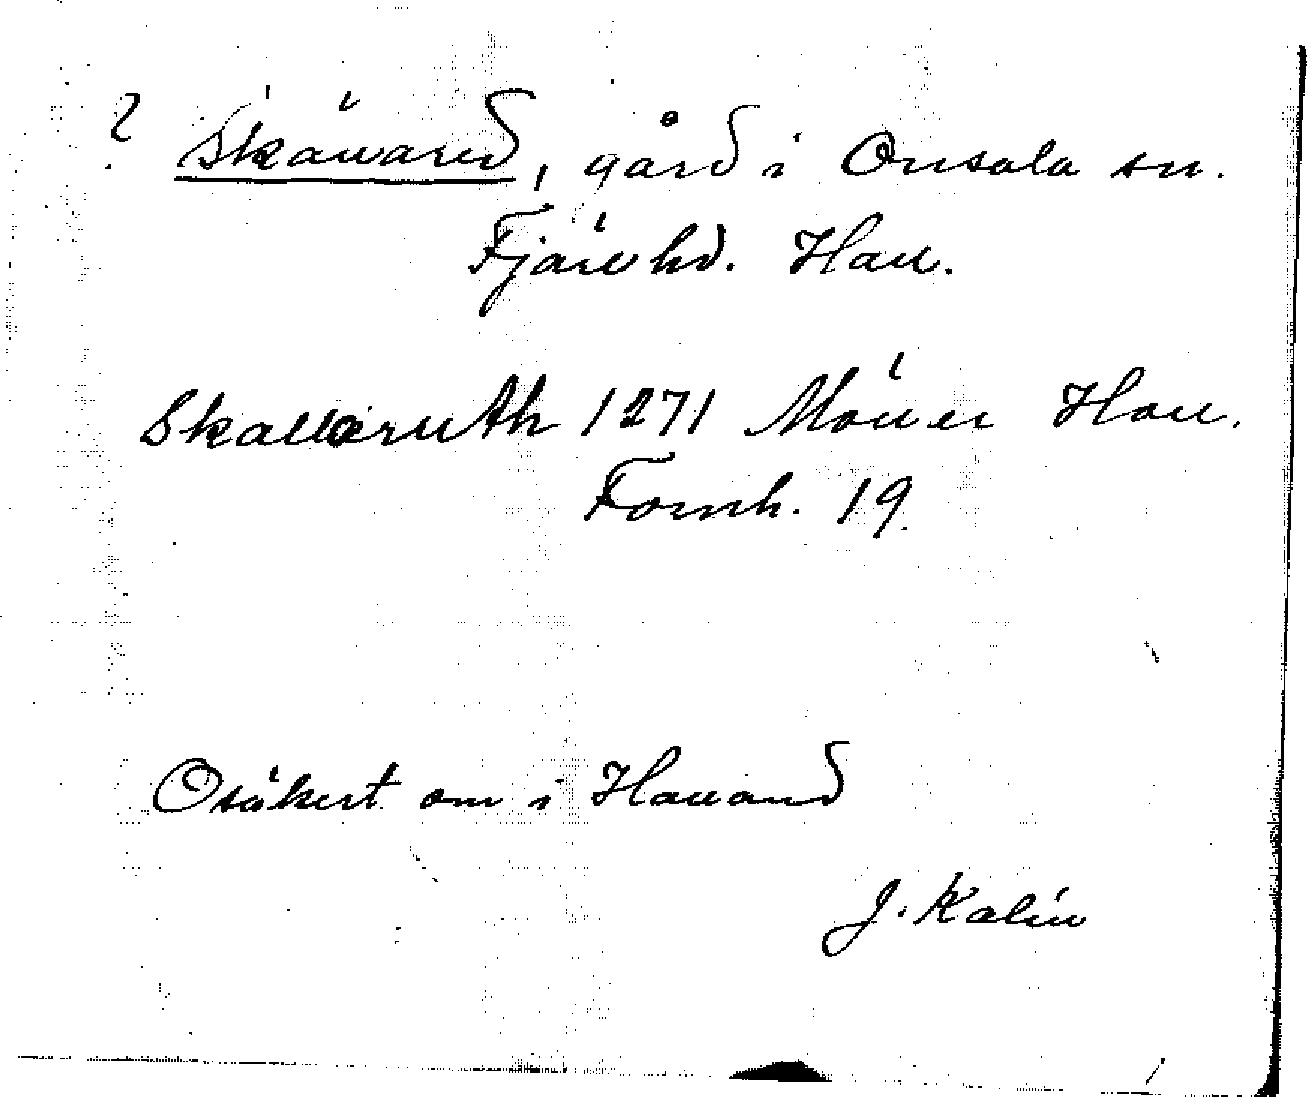 ? Skällared, gård i Onsala sn.
Fjäre hd. Hall.
Skallæruth 1271 Möller Hall.
Fornh. 19.
Osäkert om i Halland
J. Kalén